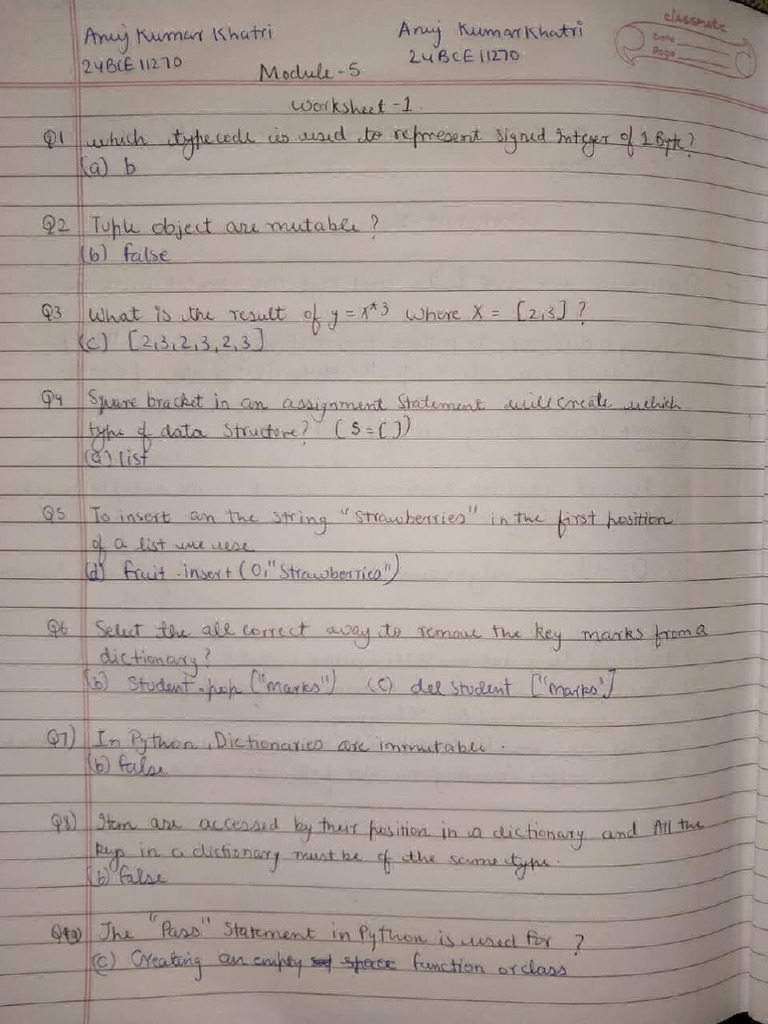 Anuj Kumar Khatri
Anuj Kumar Khatri
classmate
Date
Page
24BCE11270
24BCE11270
Module-5
Worksheet-1.
Q1 which typecode is used to represent signed Integer of 1 Byte?
(a) b
Q2 Tuple object are mutable?
(b) false
Q3 What is the result of y = x*3 where x = [2,3]?
(c) [2,3,2,3,2,3]
Q4 Square bracket in an assignment statement will create which
type of data structure? (S=[])
(a) list
Q5 To insert an the string "Strawberries" in the first position
of a list we use
(d) fruit.insert(0,"Strawberries")
Q6 Select the all correct away to remove the key marks from a
dictionary?
(b) Student.pop("marks") (c) del student ["marks"]
Q7) In Python, Dictionaries are immutable.
(b) false
Q8) Item are accessed by their position in a dictionary and All the
keys in a dictionary must be of the same type.
(b) false
The "Pass" Statement in Python is used for ?
(c) Creating an empty function or class